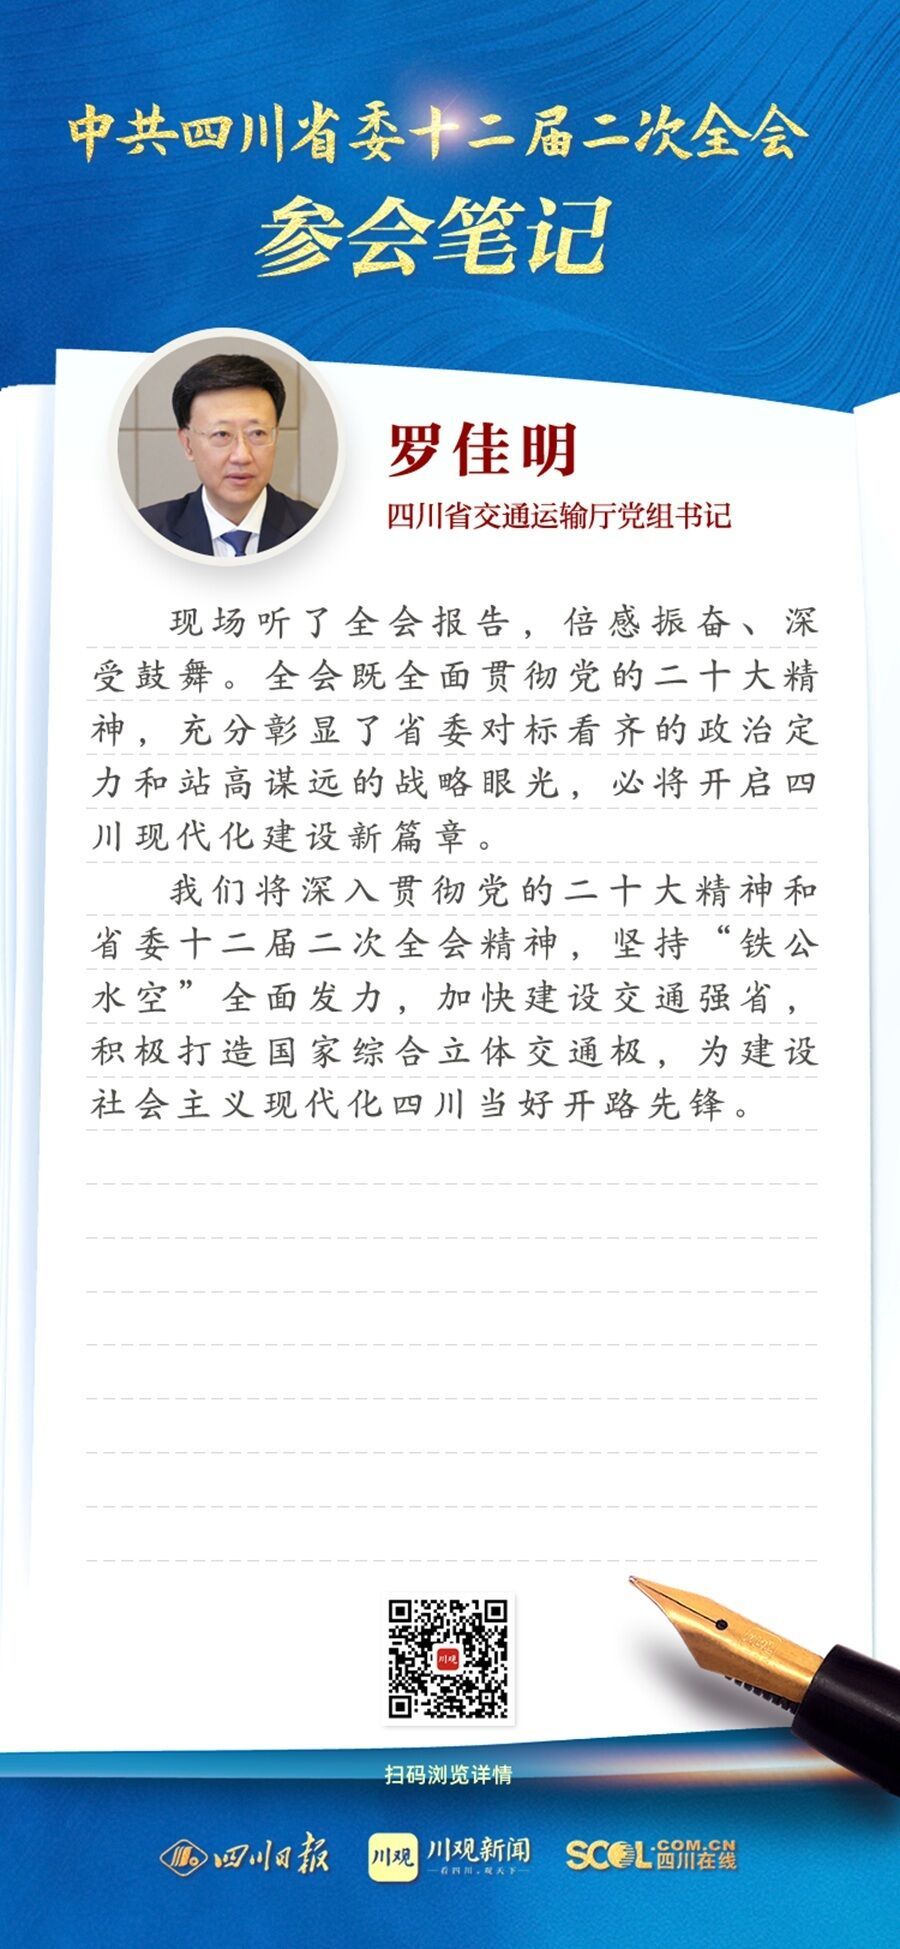 中共四川省委十二届二次全会
参会笔记
罗佳明
四川省交通运输厅党组书记
现场听了全会报告，倍感振奋、深
受鼓舞。全会既全面贯彻党的二十大精
神，充分彰显了省委对标看齐的政治定
力和站高谋远的战略眼光，必将开启四
川现代化建设新篇章。
我们将深入贯彻党的二十大精神和
省委十二届二次全会精神，坚持“铁公
水空”全面发力，加快建设交通强省，
积极打造国家综合立体交通极，为建设
社会主义现代化四川当好开路先锋。
川观
扫码浏览详情
四川日报
川观 川观新闻
看四川，观天下
SCOL.COM.CN
四川在线